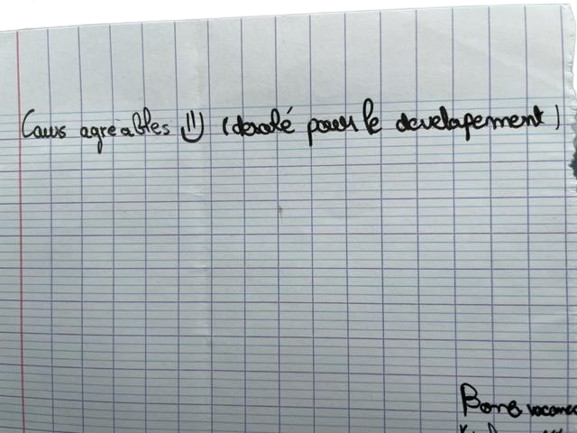 Cours agréables =) (desolé pour le developement)
Bonne vacances